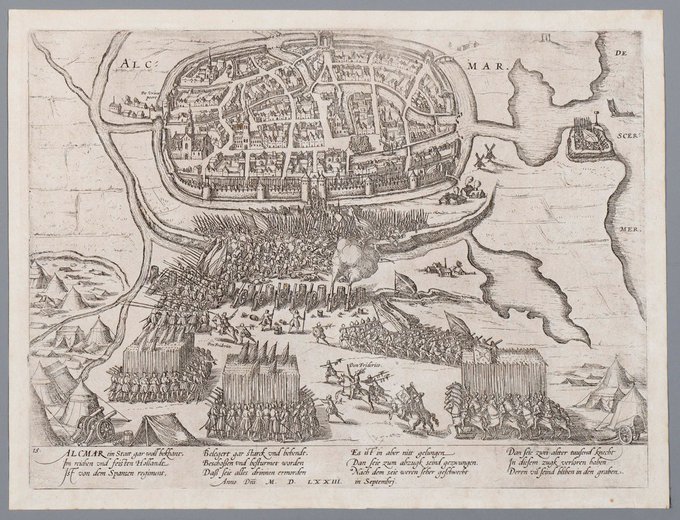 ALC:
MAR.
DE
SCER:
MER.
Don Frederico.
15
ALCMAR ein Statt gar woll bekhant,
Im reichen vnd feisten Hollandt,
Ist von dem Spanien regiment,
Belegert gar starck vnd behende,
Beschossen vnd bestürmet worden
Daß seie alles drinnen ermorden
Es ist in aber nitt gelungen
Dan seie zum abzugk seind gezwungen
Nach dem seie weren seher geschwecht
Dan seie zwei alter tausend knecht
In diesem zugk verloren haben
Deren vil seind bliben in den graben.
Anno Dñi M. D. LXXIII. in Septembrj.